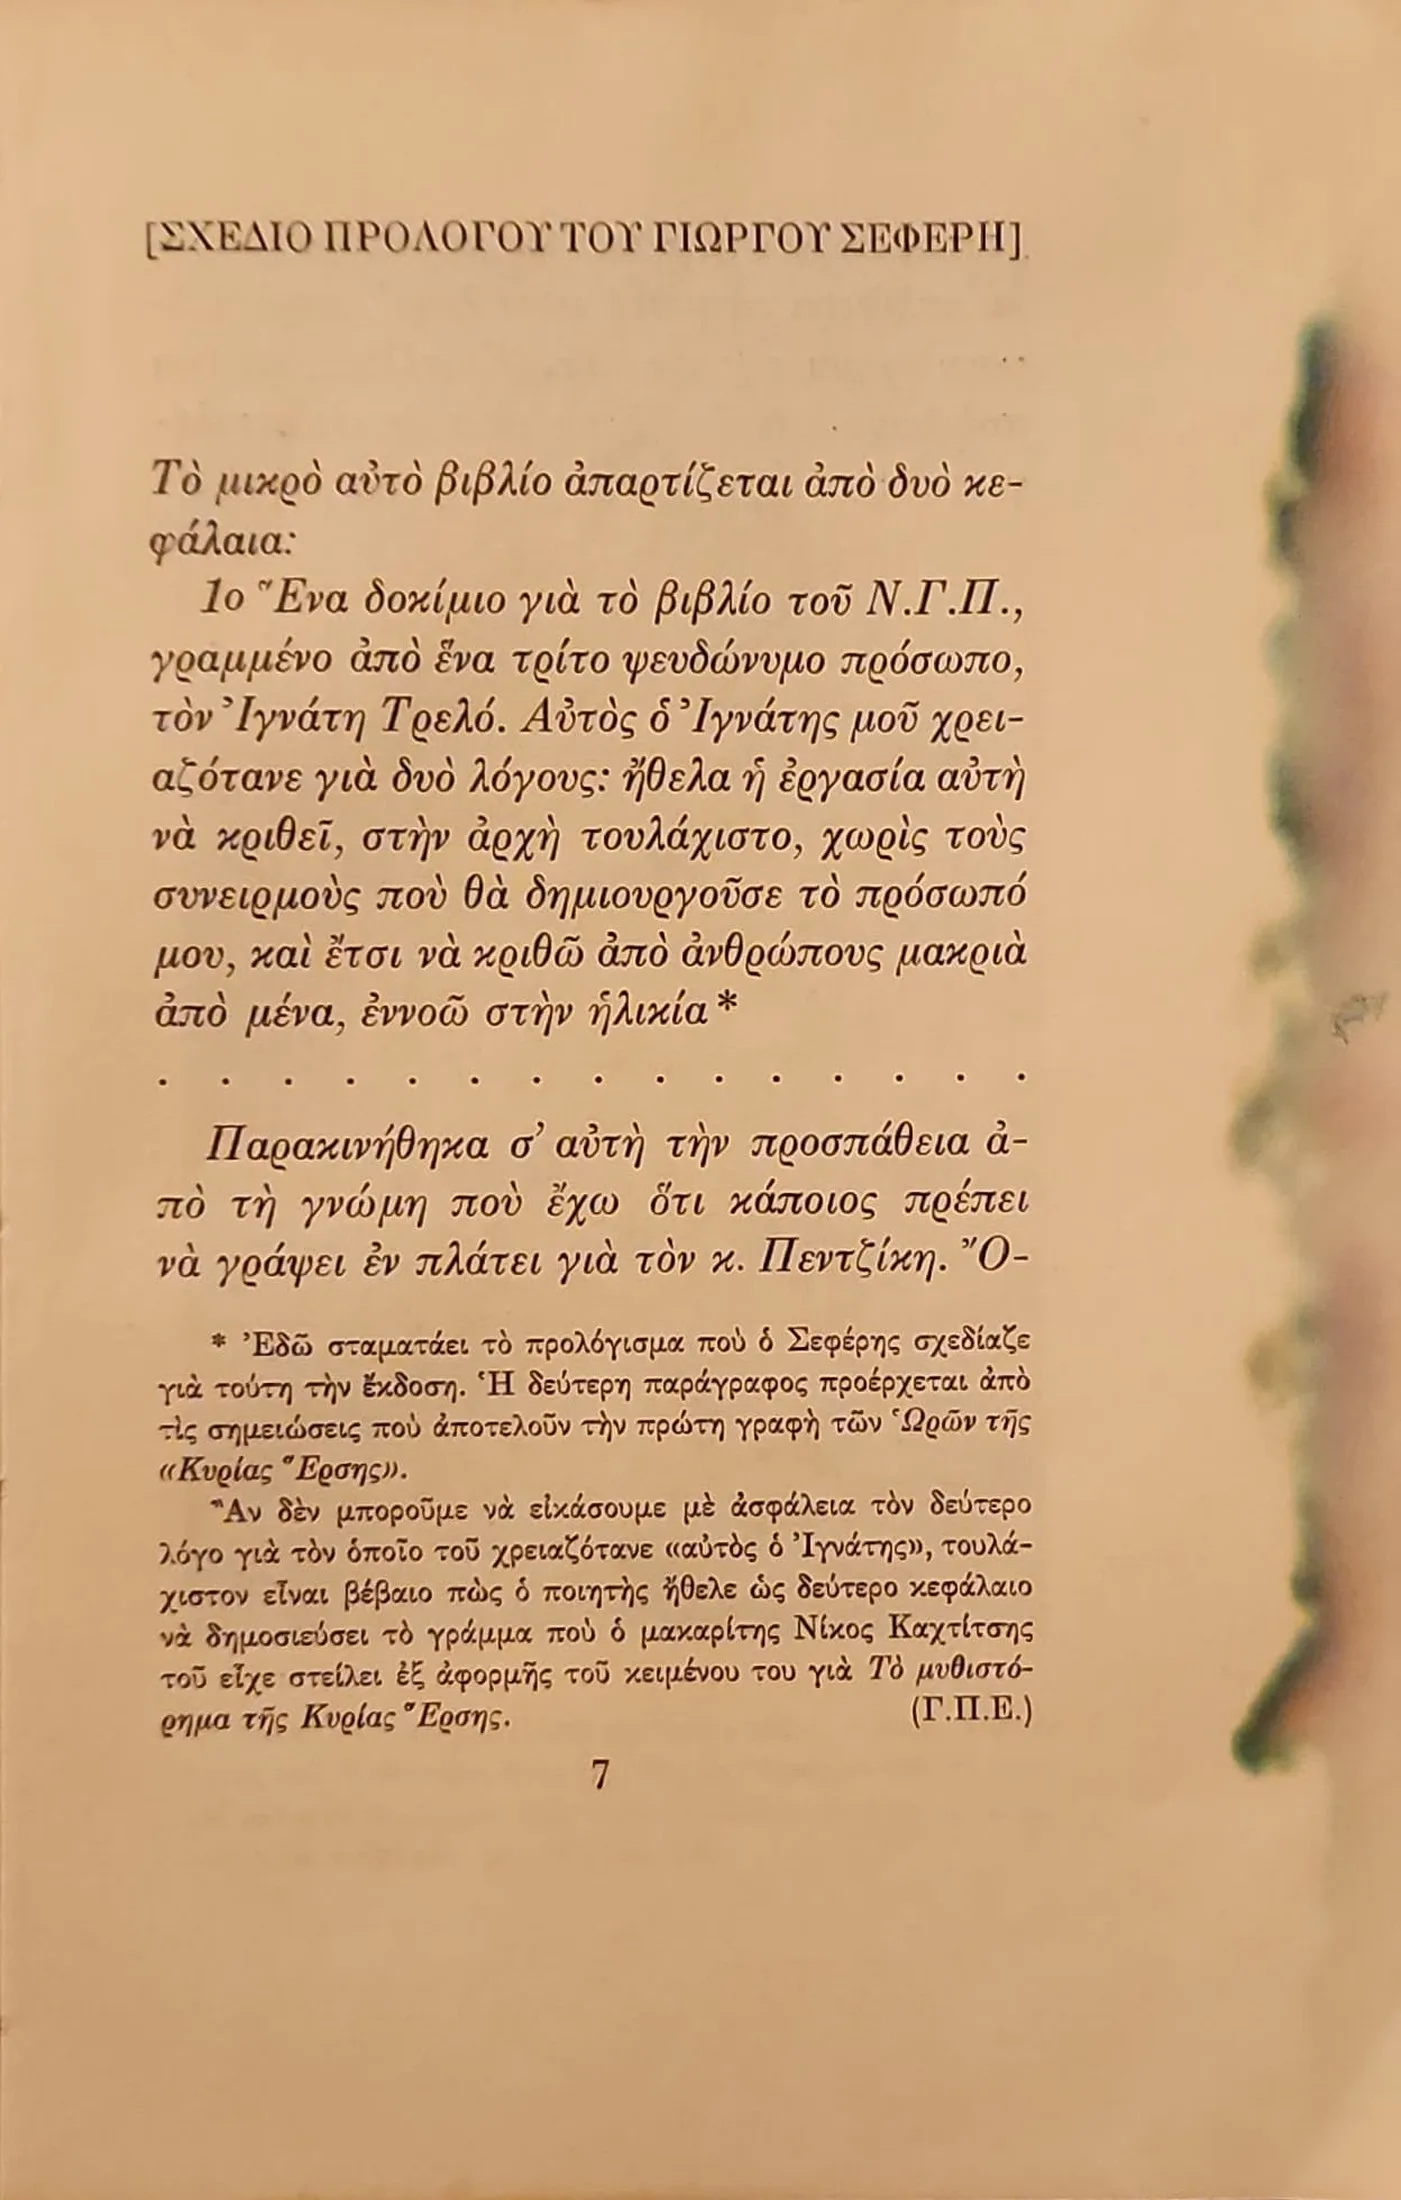 [ΣΧΕΔΙΟ ΠΡΟΛΟΓΟΥ ΤΟΥ ΓΙΩΡΓΟΥ ΣΕΦΕΡΗ]
Τὸ μικρὸ αὐτὸ βιβλίο ἀπαρτίζεται ἀπὸ δυὸ κε-
φάλαια:
1ο Ἕνα δοκίμιο γιὰ τὸ βιβλίο τοῦ Ν.Γ.Π.,
γραμμένο ἀπὸ ἕνα τρίτο ψευδώνυμο πρόσωπο,
τὸν Ἰγνάτη Τρελό. Αὐτὸς ὁ Ἰγνάτης μοῦ χρει-
αζότανε γιὰ δυὸ λόγους: ἤθελα ἡ ἐργασία αὐτὴ
νὰ κριθεῖ, στὴν ἀρχὴ τουλάχιστο, χωρὶς τοὺς
συνειρμοὺς ποὺ θὰ δημιουργοῦσε τὸ πρόσωπό
μου, καὶ ἔτσι νὰ κριθῶ ἀπὸ ἀνθρώπους μακριὰ
ἀπὸ μένα, ἐννοῶ στὴν ἡλικία *
. . . . . . . . . . . . . . .
Παρακινήθηκα σ' αὐτὴ τὴν προσπάθεια ἀ-
πὸ τὴ γνώμη ποὺ ἔχω ὅτι κάποιος πρέπει
νὰ γράψει ἐν πλάτει γιὰ τὸν κ. Πεντζίκη. Ὅ-
* Ἐδῶ σταματάει τὸ προλόγισμα ποὺ ὁ Σεφέρης σχεδίαζε
γιὰ τούτη τὴν ἔκδοση. Ἡ δεύτερη παράγραφος προέρχεται ἀπὸ
τὶς σημειώσεις ποὺ ἀποτελοῦν τὴν πρώτη γραφὴ τῶν Ὡρῶν τῆς
«Κυρίας Ἕρσης».
Ἂν δὲν μποροῦμε νὰ εἰκάσουμε μὲ ἀσφάλεια τὸν δεύτερο
λόγο γιὰ τὸν ὁποῖο τοῦ χρειαζότανε «αὐτὸς ὁ Ἰγνάτης», τουλά-
χιστον εἶναι βέβαιο πὼς ὁ ποιητὴς ἤθελε ὡς δεύτερο κεφάλαιο
νὰ δημοσιεύσει τὸ γράμμα ποὺ ὁ μακαρίτης Νίκος Καχτίτσης
τοῦ εἶχε στείλει ἐξ ἀφορμῆς τοῦ κειμένου του γιὰ Τὸ μυθιστό-
ρημα τῆς Κυρίας Ἕρσης. (Γ.Π.Ε.)
7